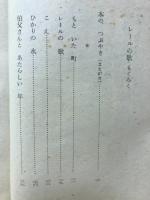 レールの歌・もくろく
本の つぶやき（まえがき）
もと いた 町
レールの 歌
こ え
ひかりの 水
伯父さんと あたらしい 年